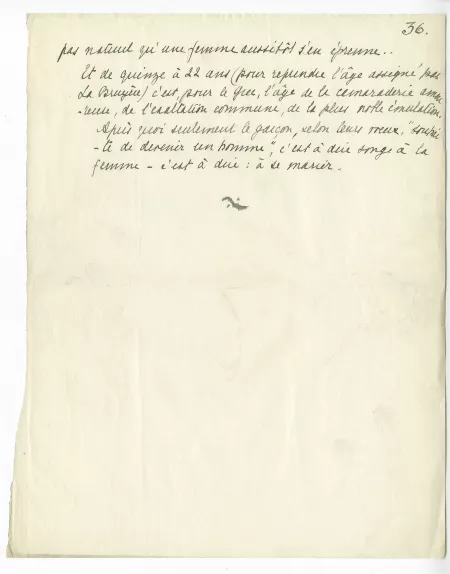 36.
pas naturel qu'une femme aussitôt s'en éprenne..
Et de quinze à 22 ans (pour reprendre l'âge assigné par
La Bruyère) c'est, pour le grec, l'âge de la camaraderie amou
-reuse, de l'exaltation commune, de la plus noble émulation.
Après quoi seulement le garçon, selon leurs vœux, "souhai
-te de devenir un homme", c'est à dire songe à la
femme – c'est à dire : à se marier.